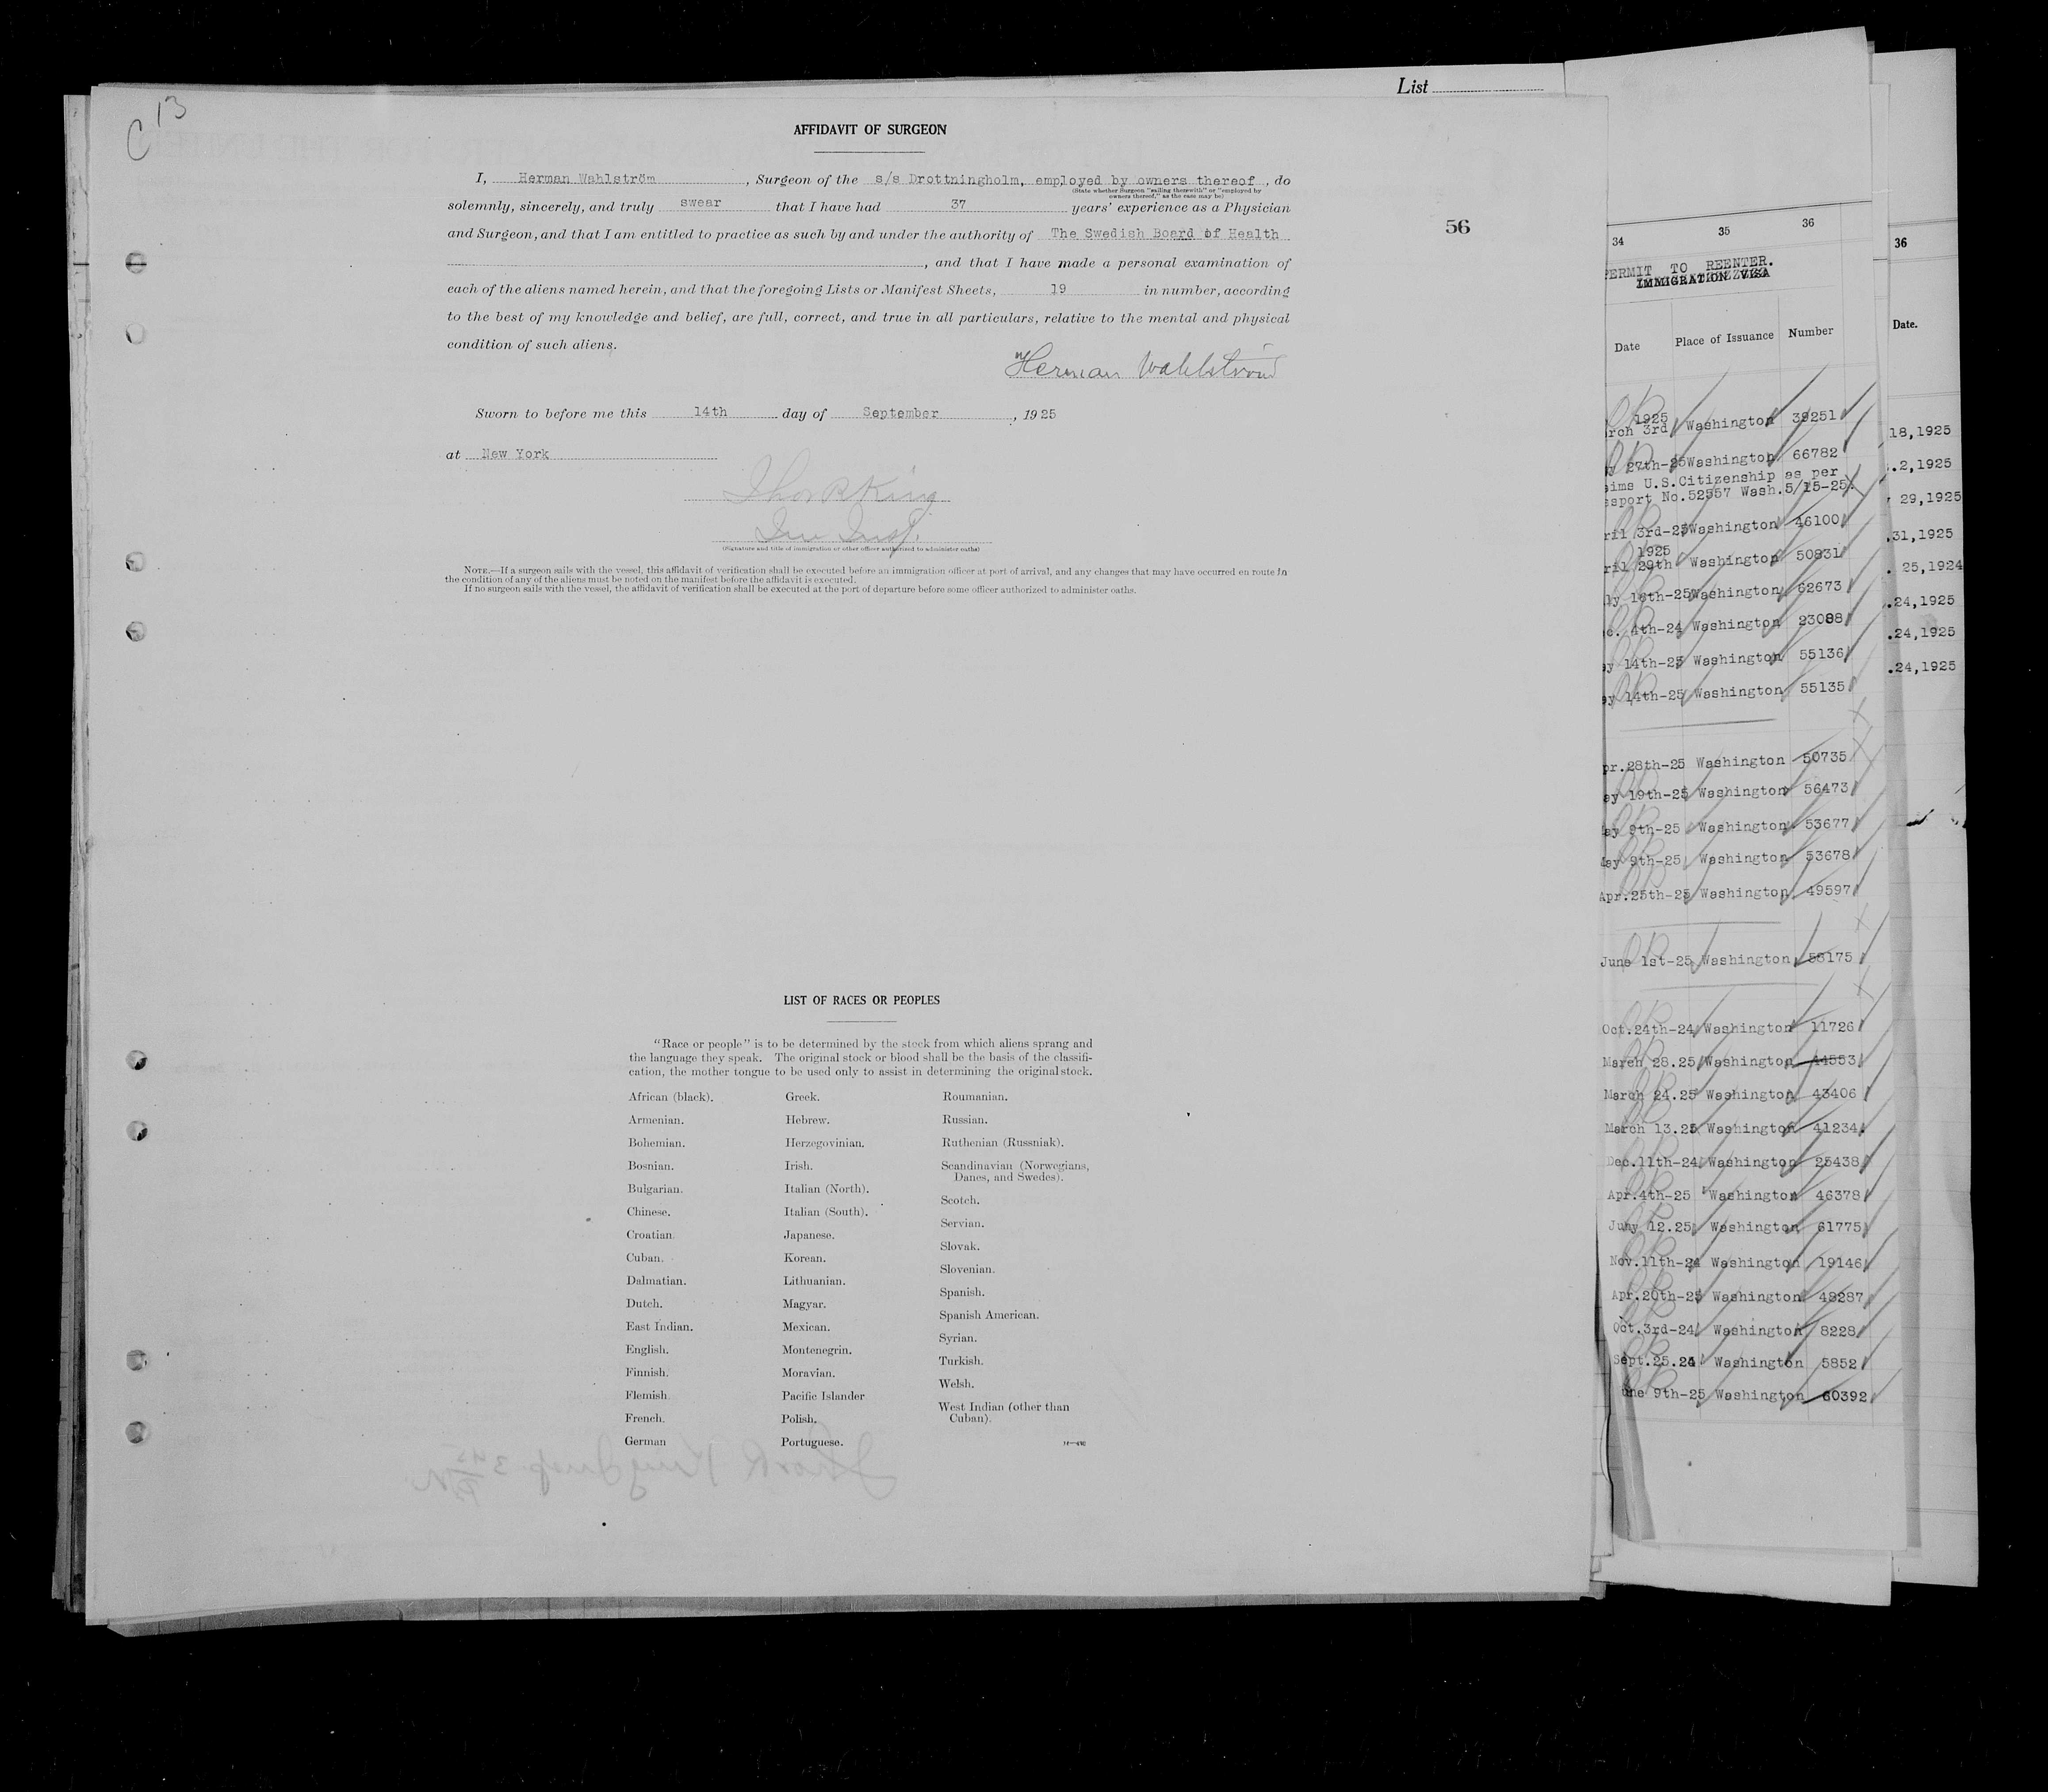 C 13
List
AFFIDAVIT OF SURGEON
I, Herman Wahlström, Surgeon of the s/s Drottningholm, employed by owners thereof, do
(State whether Surgeon "sailing therewith" or "employed by
owners thereof," as the case may be)
solemnly, sincerely, and truly swear that I have had 37 years' experience as a Physician
and Surgeon, and that I am entitled to practice as such by and under the authority of The Swedish Board of Health
, and that I have made a personal examination of
each of the aliens named herein, and that the foregoing Lists or Manifest Sheets, 19 in number, according
to the best of my knowledge and belief, are full, correct, and true in all particulars, relative to the mental and physical
condition of such aliens.
Herman Wahlström
Sworn to before me this 14th day of September, 1925
at New York
Thos R King
Imm Insp.
(Signature and title of immigration or other officer authorized to administer oaths)
NOTE.—If a surgeon sails with the vessel, this affidavit of verification shall be executed before an immigration officer at port of arrival, and any changes that may have occurred en route in
the condition of any of the aliens must be noted on the manifest before the affidavit is executed.
If no surgeon sails with the vessel, the affidavit of verification shall be executed at the port of departure before some officer authorized to administer oaths.
56
LIST OF RACES OR PEOPLES
"Race or people" is to be determined by the stock from which aliens sprang and
the language they speak. The original stock or blood shall be the basis of the classifi-
cation, the mother tongue to be used only to assist in determining the original stock.
African (black).
Armenian.
Bohemian.
Bosnian.
Bulgarian.
Chinese.
Croatian.
Cuban.
Dalmatian.
Dutch.
East Indian.
English.
Finnish.
Flemish.
French.
German
Greek.
Hebrew.
Herzegovinian.
Irish.
Italian (North).
Italian (South).
Japanese.
Korean.
Lithuanian.
Magyar.
Mexican.
Montenegrin.
Moravian.
Pacific Islander
Polish.
Portuguese.
Roumanian.
Russian.
Ruthenian (Russniak).
Scandinavian (Norwegians,
Danes, and Swedes).
Scotch.
Servian.
Slovak.
Slovenian.
Spanish.
Spanish American.
Syrian.
Turkish.
Welsh.
West Indian (other than
Cuban).
34 35 36
PERMIT TO REENTER.
IMMIGRATION VISA
Date Place of Issuance Number
1925
rch 3rd Washington 39251
27th-25 Washington 66782
aims U.S.Citizenship as per
ssport No.52557 Wash.5/15-25.
ril 3rd-25 Washington 46100
1925
ril 29th Washington 50831
ly 16th-25 Washington 62673
c. 4th-24 Washington 23088
ay 14th-25 Washington 55136
ay 14th-25 Washington 55135
pr.28th-25 Washington 50735
ay 19th-25 Washington 56473
ay 9th-25 Washington 53677
May 9th-25 Washington 53678
Apr.25th-25 Washington 49597
June 1st-25 Washington 58175
Oct.24th-24 Washington 11726
March 28.25 Washington 44553
March 24.25 Washington 43406
March 13.25 Washington 41234
Dec.11th-24 Washington 25438
Apr.4th-25 Washington 46378
Juny 12.25 Washington 61775
Nov.11th-24 Washington 19146
Apr.20th-25 Washington 48287
Oct.3rd-24 Washington 8228
Sept.25.24 Washington 5852
une 9th-25 Washington 60392
36
Date.
18,1925
.2,1925
29,1925
.31,1925
. 25,1924
.24,1925
.24,1925
.24,1925